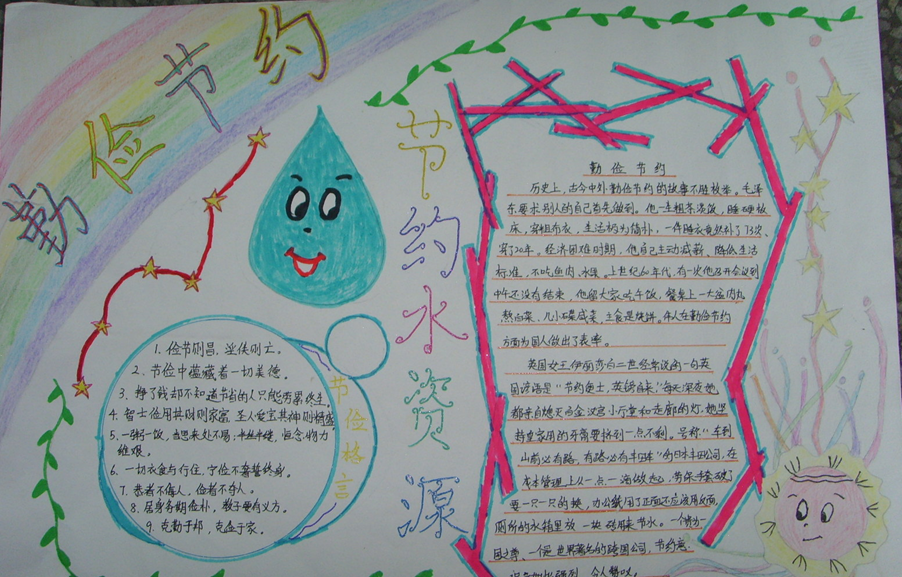 勤俭节约
节约水资源
节俭格言
1. 俭节则昌，淫佚则亡。
2. 节俭中蕴藏着一切美德。
3. 挣了钱却不知道节省的人只能穷累终生。
4. 智士俭用其财则家富，圣人爱宝其神则精盛。
5. 一粥一饭，当思来处不易；半丝半缕，恒念物力
维艰。
6. 一切衣食与行住，宁俭不奢誓终身。
7. 恭者不侮人，俭者不夺人。
8. 居身务期俭朴，教子要有义方。
9. 克勤于邦，克俭于家。
勤俭节约
历史上，古今中外勤俭节约的故事不胜枚举。毛泽
东要求别人的自己首先做到。他一生粗茶淡饭，睡硬板
床，穿粗布衣，生活极为简朴，一件睡衣竟然补了73次、
穿了20年。经济困难时期，他自己主动减薪、降低生活
标准，不吃鱼肉、水果。上世纪60年代，有一次他召开会议到
中午还没有结束，他留大家吃午饭，餐桌上一大盆肉丸
熬白菜、几小碟咸菜，主食是烧饼。伟人在勤俭节约
方面为国人做出了表率。
英国女王伊丽莎白二世经常说的一句英
国谚语是“节约便士，英镑自来”每天深夜她
都亲自熄灭白金汉宫小厅堂和走廊的灯，她坚
持皇家用的牙膏要挤到一点不剩。号称“车到
山前必有路，有路必有丰田车”的日本丰田公司，在
成本管理上从一点一滴做起，劳保手套破了
要一只一只的换，办公纸用了正面还应该用反面，
厕所的水箱里放一块砖用来节水。一个
国之尊，一个世界著名的跨国公司，节约意